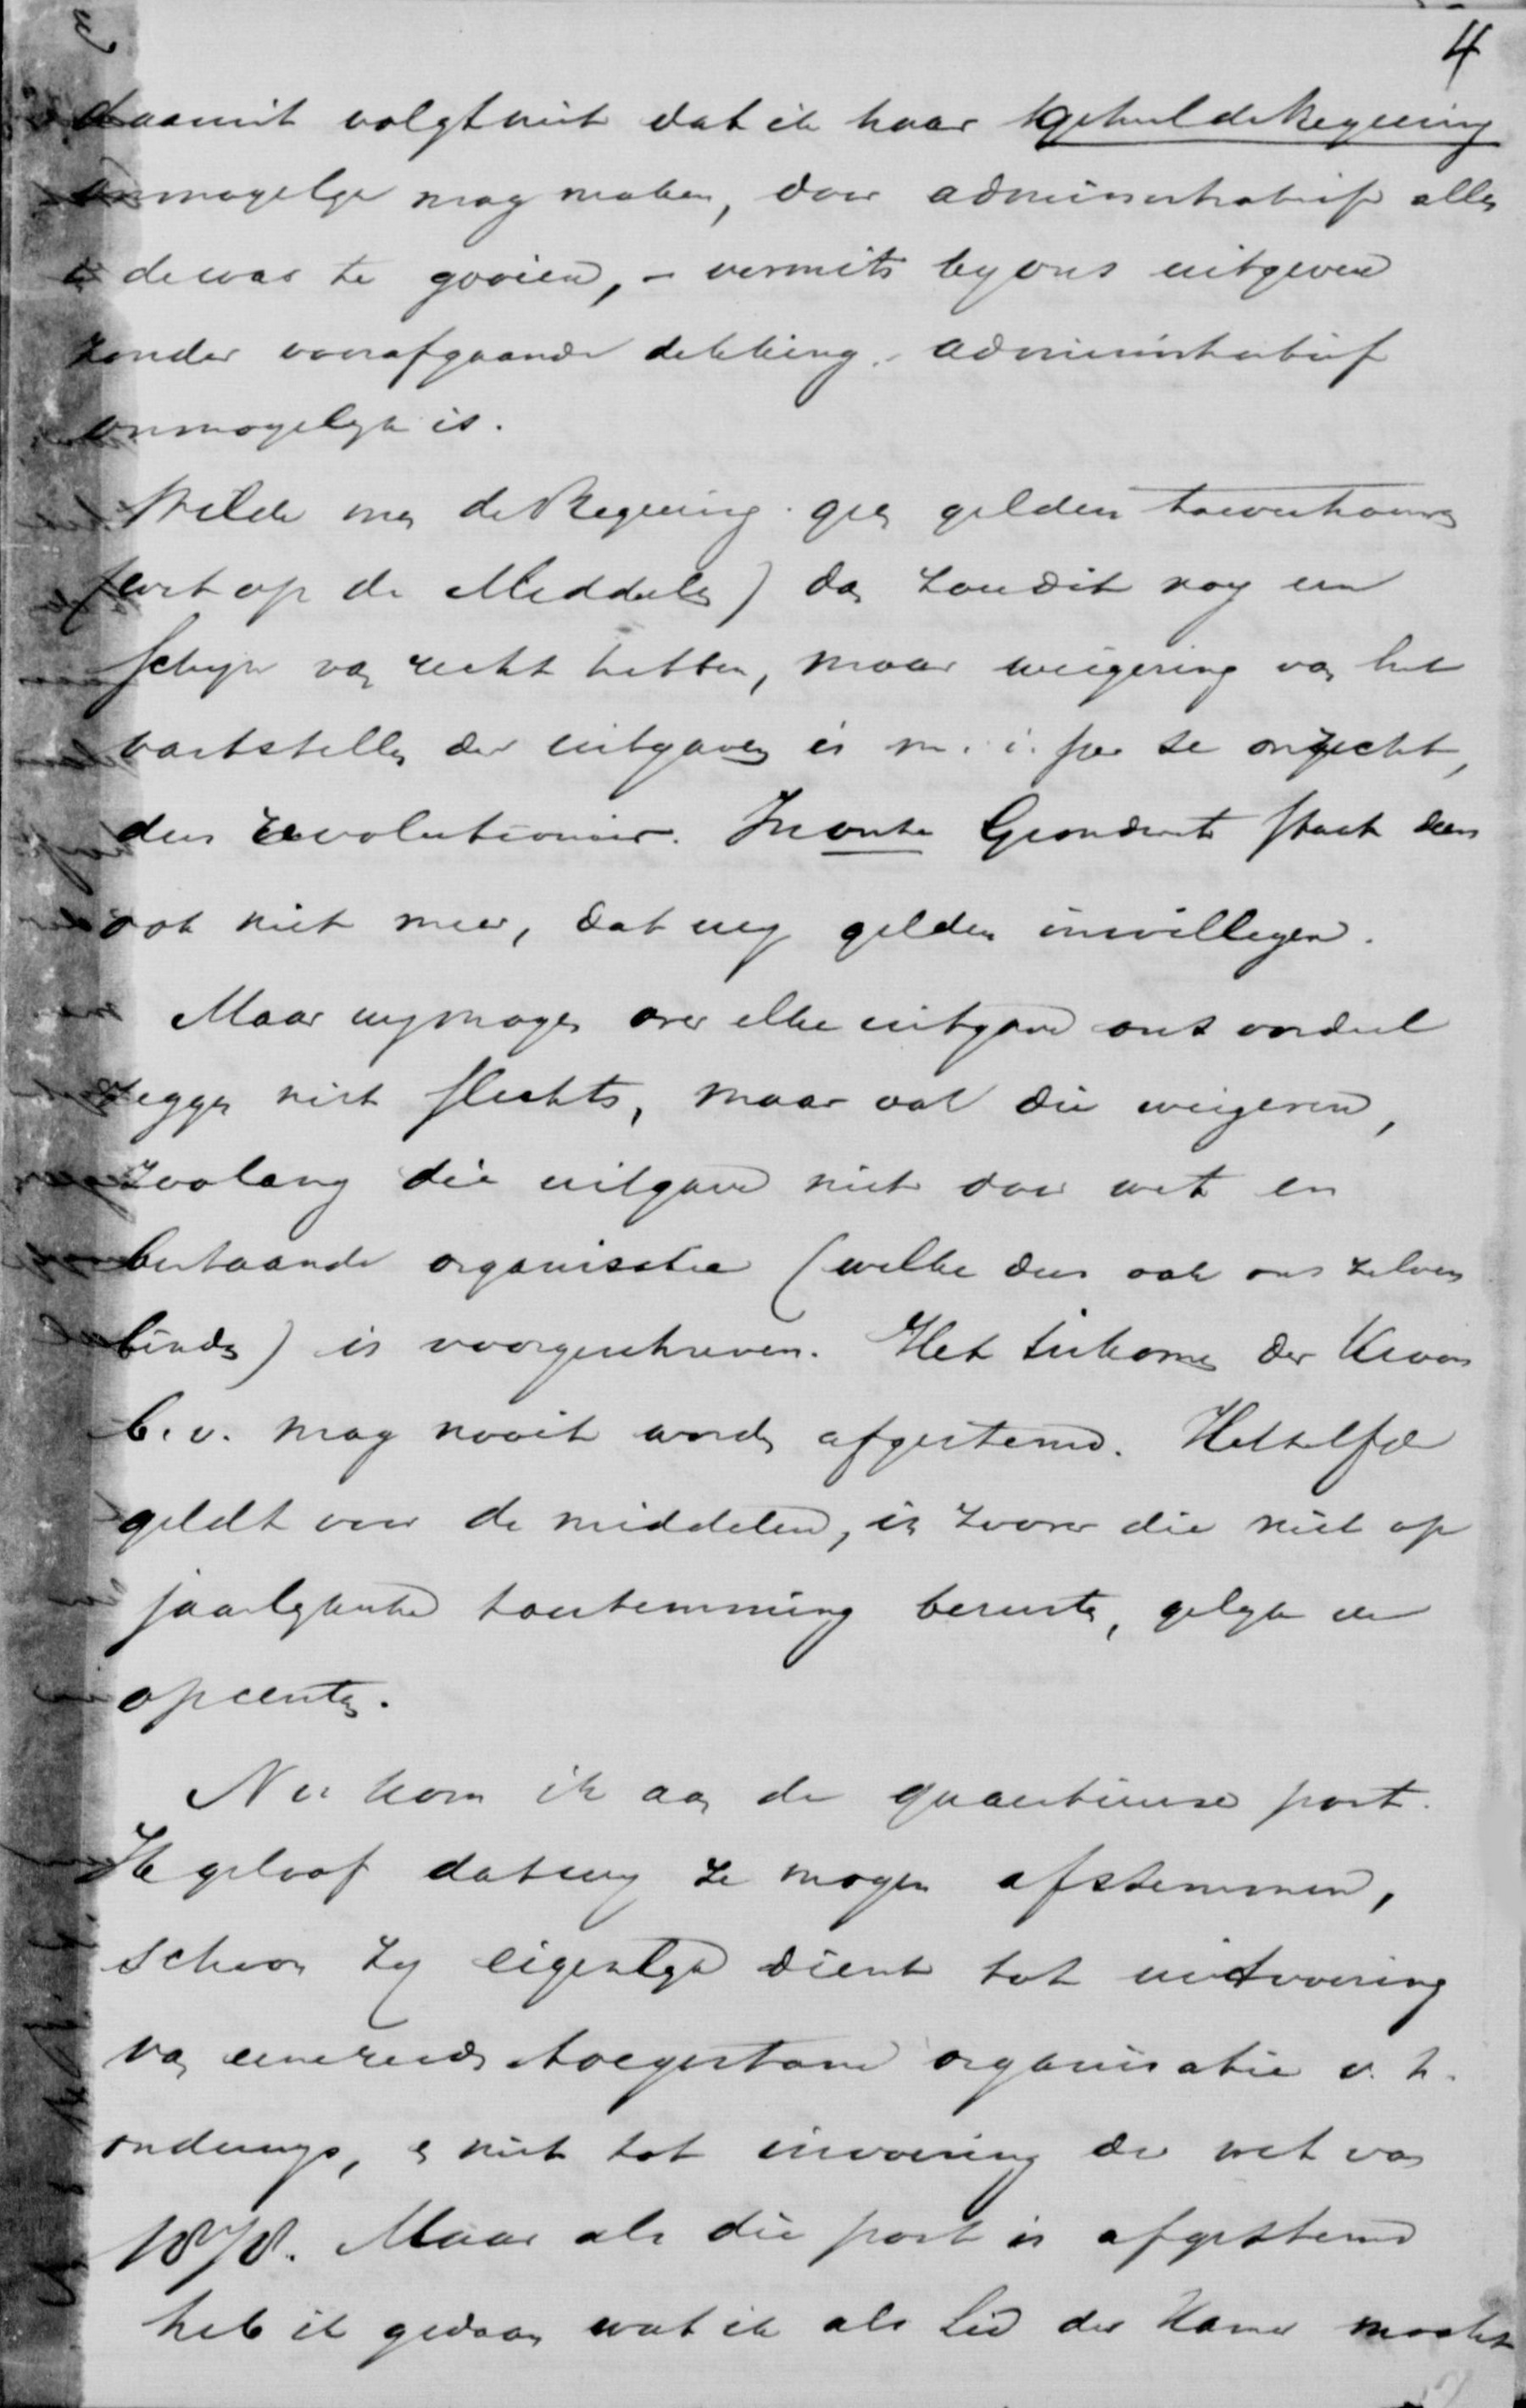 4
daaruit volgt niet dat ik haar geheel de Regeering
onmogelijk mag maken, door administratief alles
in de war te gooien, – vermits bij ons uitgeven
zonder voorafgaande dekking administratief
onmogelijk is.
Wilde men de Regeering geen gelden toevertrouwen
(wet op de Middelen) dan zou dit nog een
schijn van recht hebben, maar weigering van het
vaststellen der uitgaven is m. i. per se onrecht,
dus revolutionair. In onze Grondwet staat dan
ook niet meer, dat wij gelden inwilligen.
Maar wij mogen over elke uitgave ons oordeel
zeggen niet slechts, maar ook die weigeren,
zoolang die uitgave niet door wet en
bestaande organisatie (welke dus ook ons zelven
bindt) is voorgeschreven. Het inkomen der Kroon
b.v. mag nooit worden afgestemd. Hetzelfde
geldt voor de middelen, in zoover die niet op
jaarlijksche toestemming berusten, gelijk de
opcenten.
Nu kom ik aan de quaestieuse post.
Ik geloof dat wij ze mogen afstemmen,
schoon zij eigenlijk dient tot uitvoering
van eene reeds toegestane organisatie v. h.
onderwijs, en niet tot invoering der wet van
1878. Maar als die post is afgestemd
heb ik gedaan wat ik als Lid der Kamer mocht